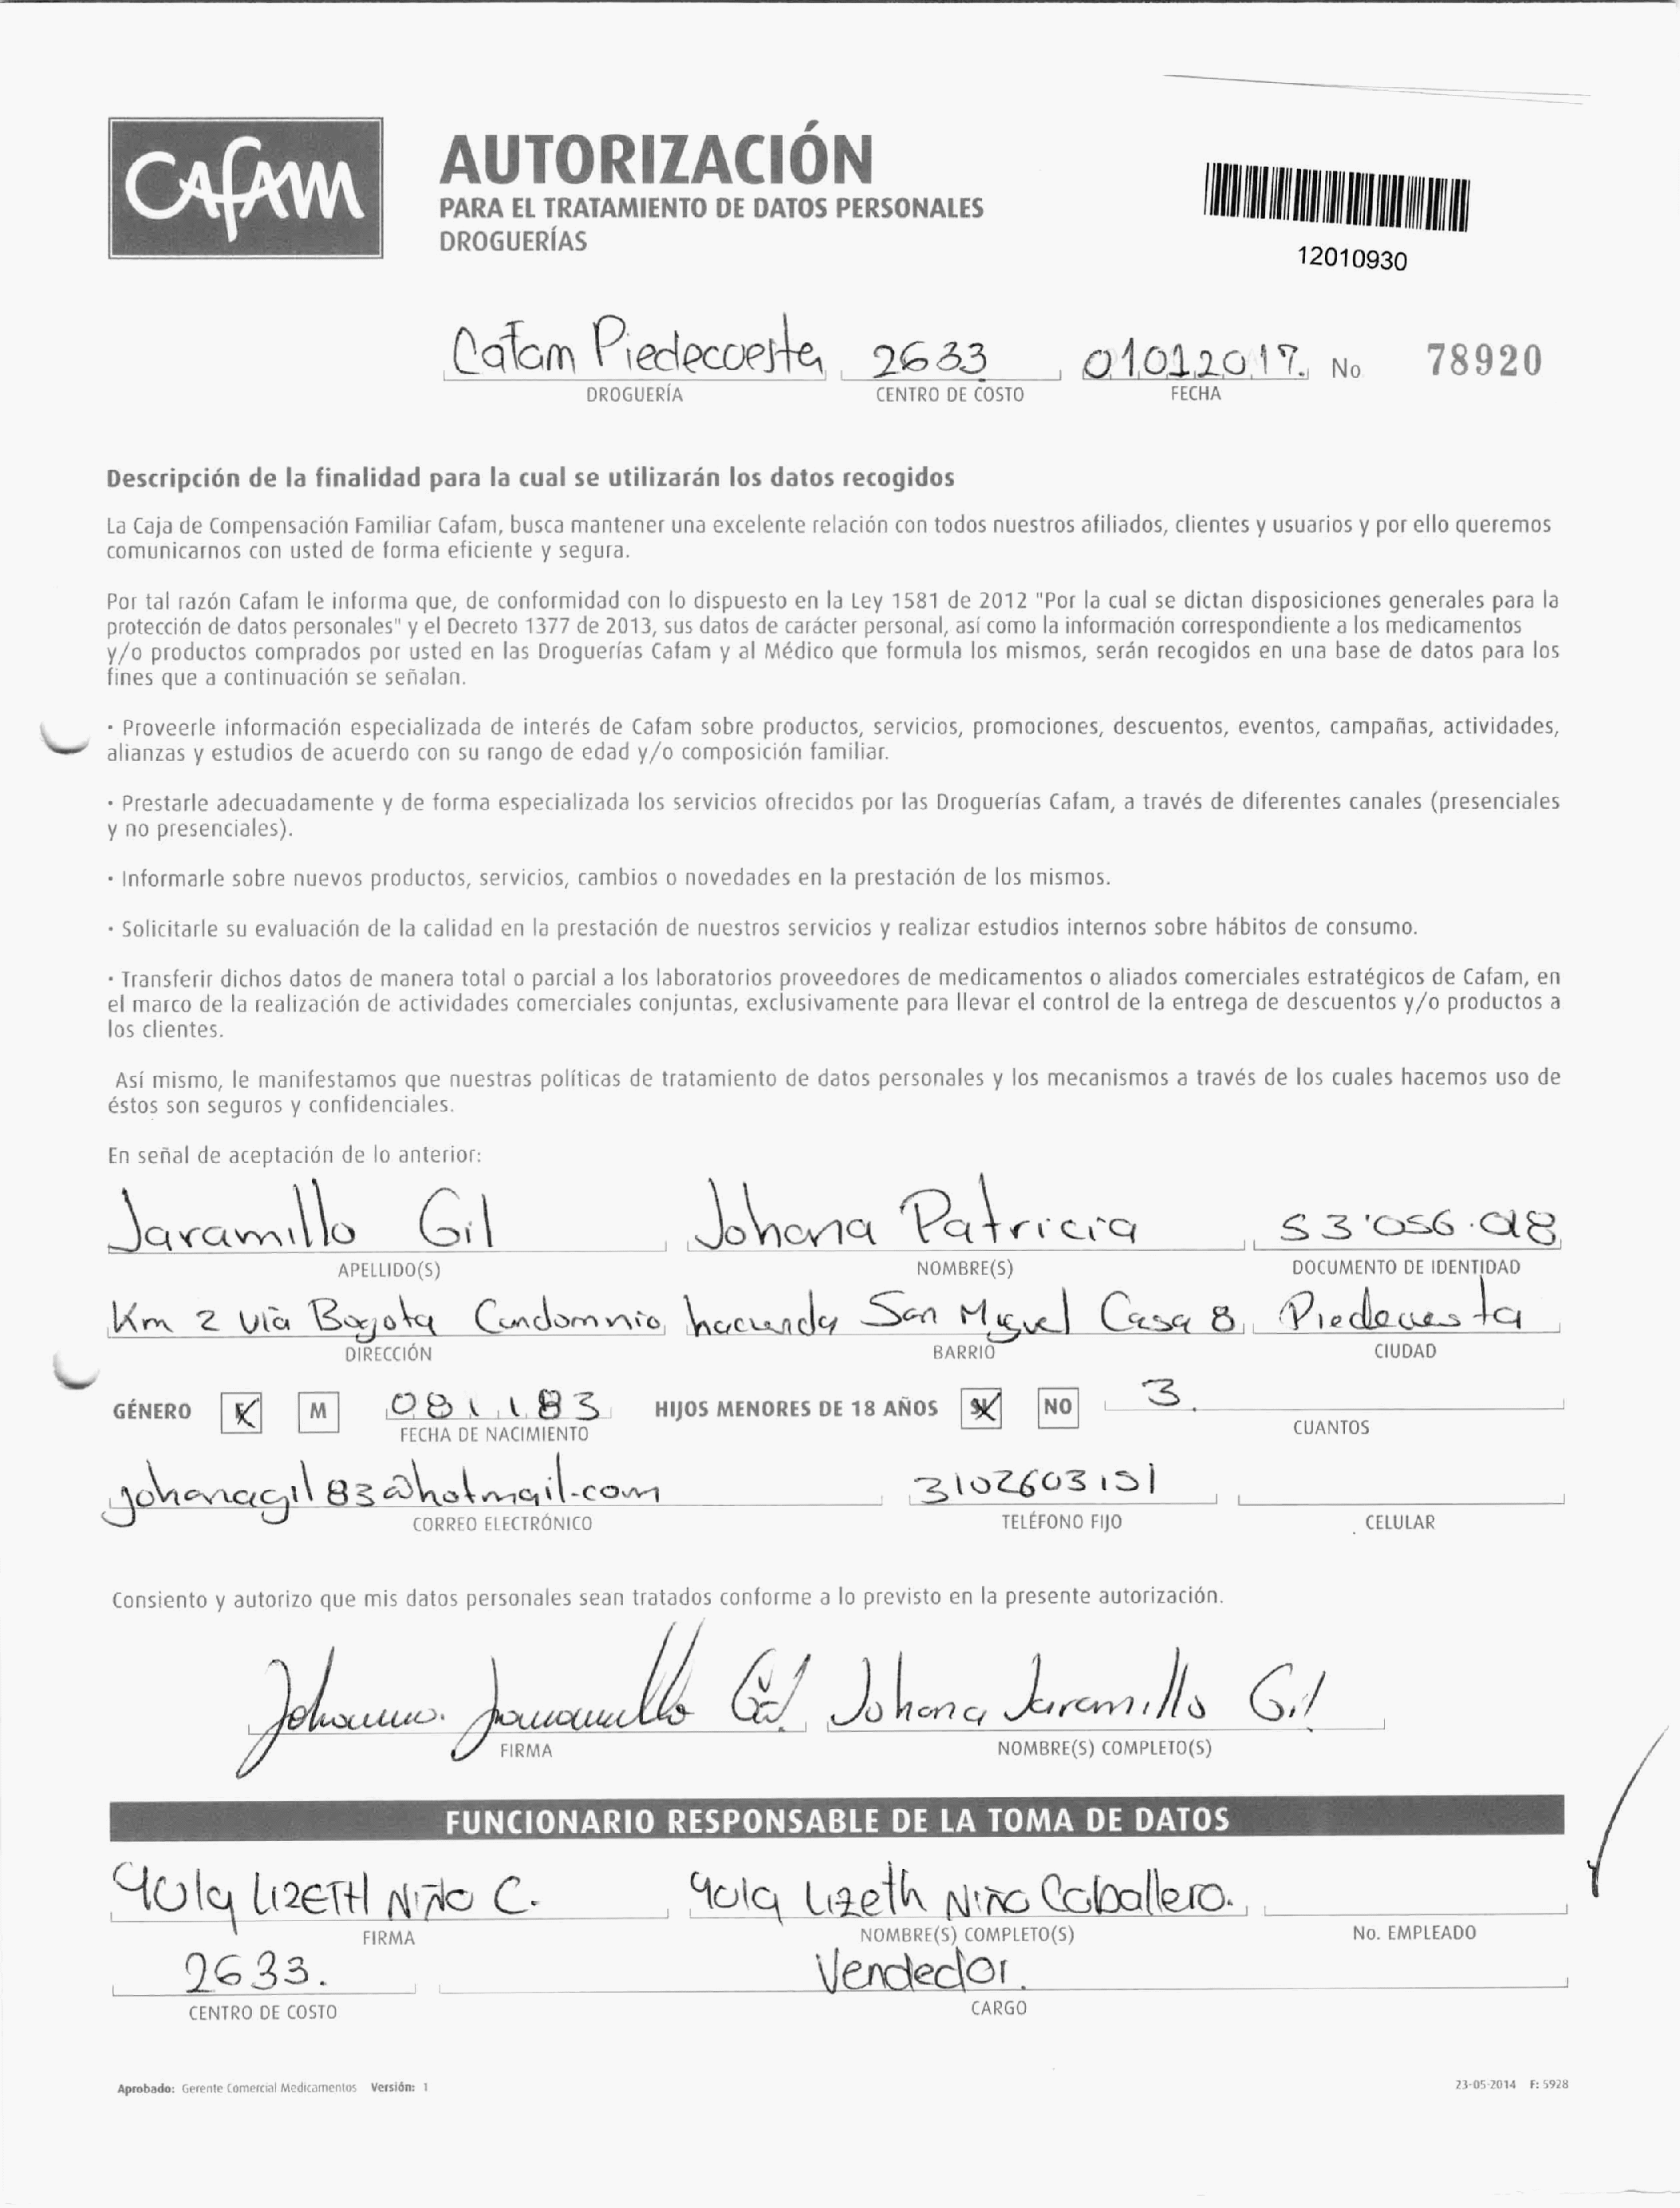 CAFAM
AUTORIZACIÓN
PARA EL TRATAMIENTO DE DATOS PERSONALES
DROGUERÍAS
12010930
Cafam Piedecuesta 2633 01012017. No 78920
DROGUERÍA CENTRO DE COSTO FECHA
Descripción de la finalidad para la cual se utilizarán los datos recogidos
La Caja de Compensación Familiar Cafam, busca mantener una excelente relación con todos nuestros afiliados, clientes y usuarios y por ello queremos
comunicarnos con usted de forma eficiente y segura.
Por tal razón Cafam le informa que, de conformidad con lo dispuesto en la Ley 1581 de 2012 "Por la cual se dictan disposiciones generales para la
protección de datos personales" y el Decreto 1377 de 2013, sus datos de carácter personal, así como la información correspondiente a los medicamentos
y/o productos comprados por usted en las Droguerías Cafam y al Médico que formula los mismos, serán recogidos en una base de datos para los
fines que a continuación se señalan.
· Proveerle información especializada de interés de Cafam sobre productos, servicios, promociones, descuentos, eventos, campañas, actividades,
alianzas y estudios de acuerdo con su rango de edad y/o composición familiar.
· Prestarle adecuadamente y de forma especializada los servicios ofrecidos por las Droguerías Cafam, a través de diferentes canales (presenciales
y no presenciales).
· Informarle sobre nuevos productos, servicios, cambios o novedades en la prestación de los mismos.
· Solicitarle su evaluación de la calidad en la prestación de nuestros servicios y realizar estudios internos sobre hábitos de consumo.
· Transferir dichos datos de manera total o parcial a los laboratorios proveedores de medicamentos o aliados comerciales estratégicos de Cafam, en
el marco de la realización de actividades comerciales conjuntas, exclusivamente para llevar el control de la entrega de descuentos y/o productos a
los clientes.
Así mismo, le manifestamos que nuestras políticas de tratamiento de datos personales y los mecanismos a través de los cuales hacemos uso de
éstos son seguros y confidenciales.
En señal de aceptación de lo anterior:
Jaramillo Gil Johana Patricia 53'056.018
APELLIDO(S) NOMBRE(S) DOCUMENTO DE IDENTIDAD
Km 2 vía Bogota Condominio hacienda San Miguel Casa 8 Piedecuesta
DIRECCIÓN BARRIO CIUDAD
GÉNERO F M 081183 HIJOS MENORES DE 18 AÑOS SI NO 3.
FECHA DE NACIMIENTO CUANTOS
johanagil83@hotmail.com 3102603151
CORREO ELECTRÓNICO TELÉFONO FIJO CELULAR
Consiento y autorizo que mis datos personales sean tratados conforme a lo previsto en la presente autorización.
Johana Jaramillo Gil Johana Jaramillo Gil
FIRMA NOMBRE(S) COMPLETO(S)
FUNCIONARIO RESPONSABLE DE LA TOMA DE DATOS
Yula LIZETH NIÑO C. Yula Lizeth Niño Caballero.
FIRMA NOMBRE(S) COMPLETO(S) No. EMPLEADO
2633. Vendedor.
CENTRO DE COSTO CARGO
Aprobado: Gerente Comercial Medicamentos Versión: 1 23-05-2014 F: 5928